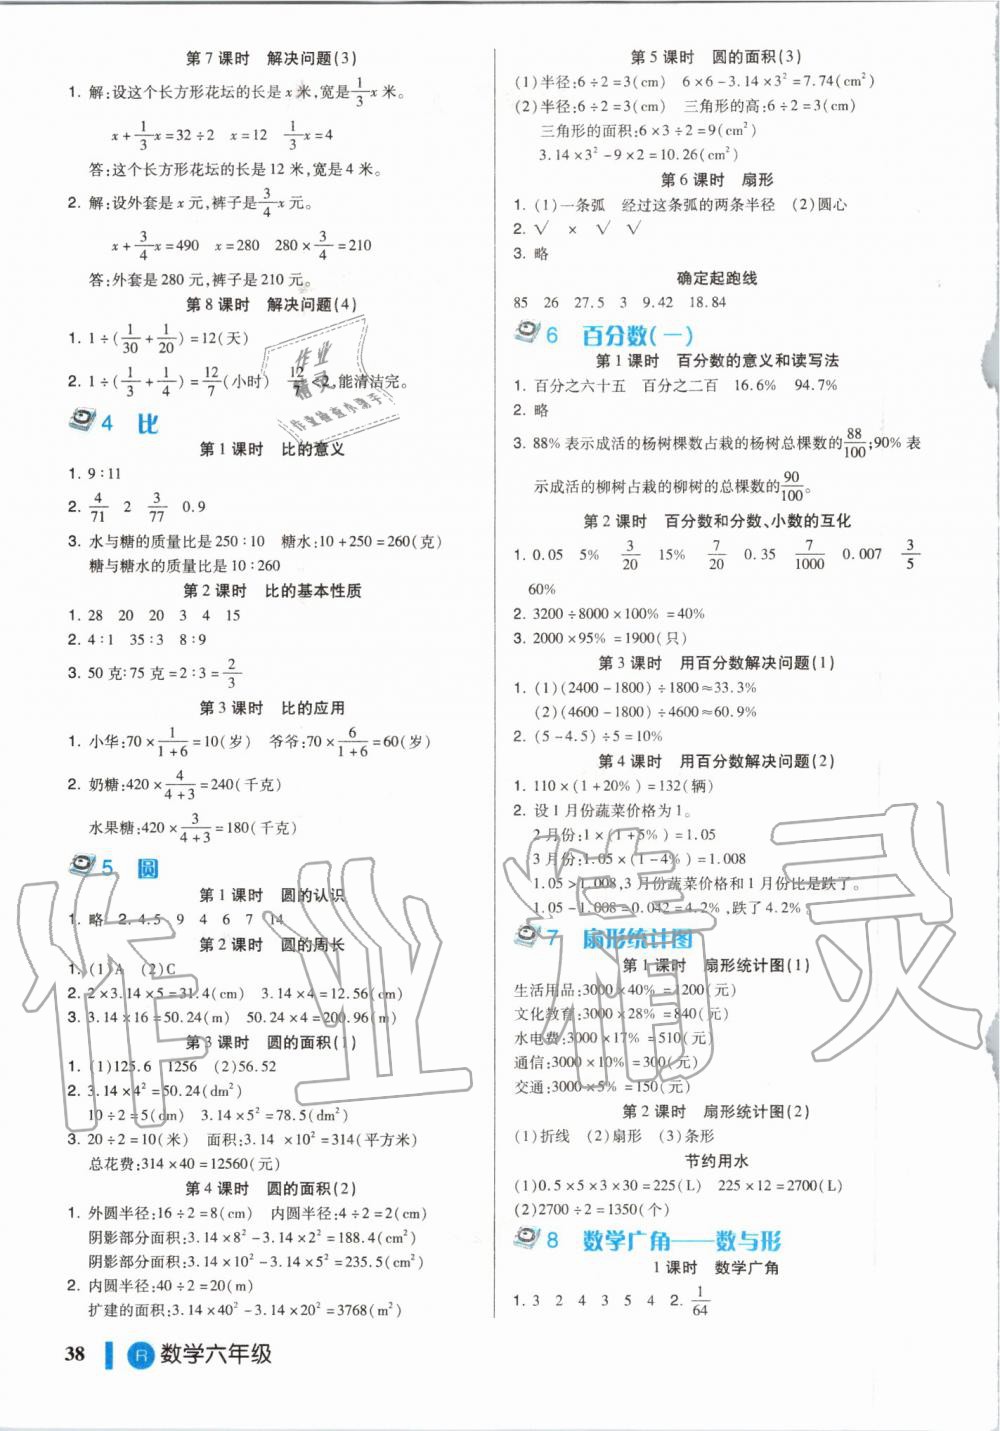 第7课时 解决问题(3)
1. 解:设这个长方形花坛的长是x米,宽是1/3x米。
x+1/3x=32÷2 x=12 1/3x=4
答:这个长方形花坛的长是12米,宽是4米。
2. 解:设外套是x元,裤子是3/4x元。
x+3/4x=490 x=280 280×3/4=210
答:外套是280元,裤子是210元。
第8课时 解决问题(4)
1. 1÷(1/30+1/20)=12(天)
2. 1÷(1/3+1/4)=12/7(小时) 12/7<2,能清洁完。
4 比
第1课时 比的意义
1. 9∶11
2. 4/71 2 3/77 0.9
3. 水与糖的质量比是250∶10 糖水:10+250=260(克)
糖与糖水的质量比是10∶260
第2课时 比的基本性质
1. 28 20 20 3 4 15
2. 4∶1 35∶3 8∶9
3. 50克∶75克=2∶3=2/3
第3课时 比的应用
1. 小华:70×1/(1+6)=10(岁) 爷爷:70×6/(1+6)=60(岁)
2. 奶糖:420×4/(4+3)=240(千克)
水果糖:420×3/(4+3)=180(千克)
5 圆
第1课时 圆的认识
1. 略 2. 4.5 9 4 6 7 14
第2课时 圆的周长
1. (1)A (2)C
2. 2×3.14×5=31.4(cm) 3.14×4=12.56(cm)
3. 3.14×16=50.24(m) 50.24×4=200.96(m)
第3课时 圆的面积(1)
1. (1)125.6 1256 (2)56.52
2. 3.14×4²=50.24(dm²)
10÷2=5(cm) 3.14×5²=78.5(dm²)
3. 20÷2=10(米) 面积:3.14×10²=314(平方米)
总花费:314×40=12560(元)
第4课时 圆的面积(2)
1. 外圆半径:16÷2=8(cm) 内圆半径:4÷2=2(cm)
阴影部分面积:3.14×8²-3.14×2²=188.4(cm²)
阴影部分面积:3.14×10²-3.14×5²=235.5(cm²)
2. 内圆半径:40÷2=20(m)
扩建的面积:3.14×40²-3.14×20²=3768(m²)
38 R 数学六年级
第5课时 圆的面积(3)
(1)半径:6÷2=3(cm) 6×6-3.14×3²=7.74(cm²)
(2)半径:6÷2=3(cm) 三角形的高:6÷2=3(cm)
三角形的面积:6×3÷2=9(cm²)
3.14×3²-9×2=10.26(cm²)
第6课时 扇形
1. (1)一条弧 经过这条弧的两条半径 (2)圆心
2. √ × √ √
3. 略
确定起跑线
85 26 27.5 3 9.42 18.84
6 百分数(一)
第1课时 百分数的意义和读写法
1. 百分之六十五 百分之二百 16.6% 94.7%
2. 略
3. 88%表示成活的杨树棵数占栽的杨树总棵数的88/100;90%表
示成活的柳树占栽的柳树的总棵数的90/100。
第2课时 百分数和分数、小数的互化
1. 0.05 5% 3/20 15% 7/20 0.35 7/1000 0.007 3/5
60%
2. 3200÷8000×100%=40%
3. 2000×95%=1900(只)
第3课时 用百分数解决问题(1)
1. (1)(2400-1800)÷1800≈33.3%
(2)(4600-1800)÷4600≈60.9%
2. (5-4.5)÷5=10%
第4课时 用百分数解决问题(2)
1. 110×(1+20%)=132(辆)
2. 设1月份蔬菜价格为1。
2月份:1×(1+5%)=1.05
3月份:1.05×(1-4%)=1.008
1.05>1.008,3月份蔬菜价格和1月份比是跌了。
1.05-1.008=0.042=4.2%,跌了4.2%。
7 扇形统计图
第1课时 扇形统计图(1)
生活用品:3000×40%=1200(元)
文化教育:3000×28%=840(元)
水电费:3000×17%=510(元)
通信:3000×10%=300(元)
交通:3000×5%=150(元)
第2课时 扇形统计图(2)
(1)折线 (2)扇形 (3)条形
节约用水
(1)0.5×5×3×30=225(L) 225×12=2700(L)
(2)2700÷2=1350(个)
8 数学广角——数与形
1课时 数学广角
1. 3 2 4 3 5 4 2. 1/64
作业精灵
作业
精灵
作业检查小助手